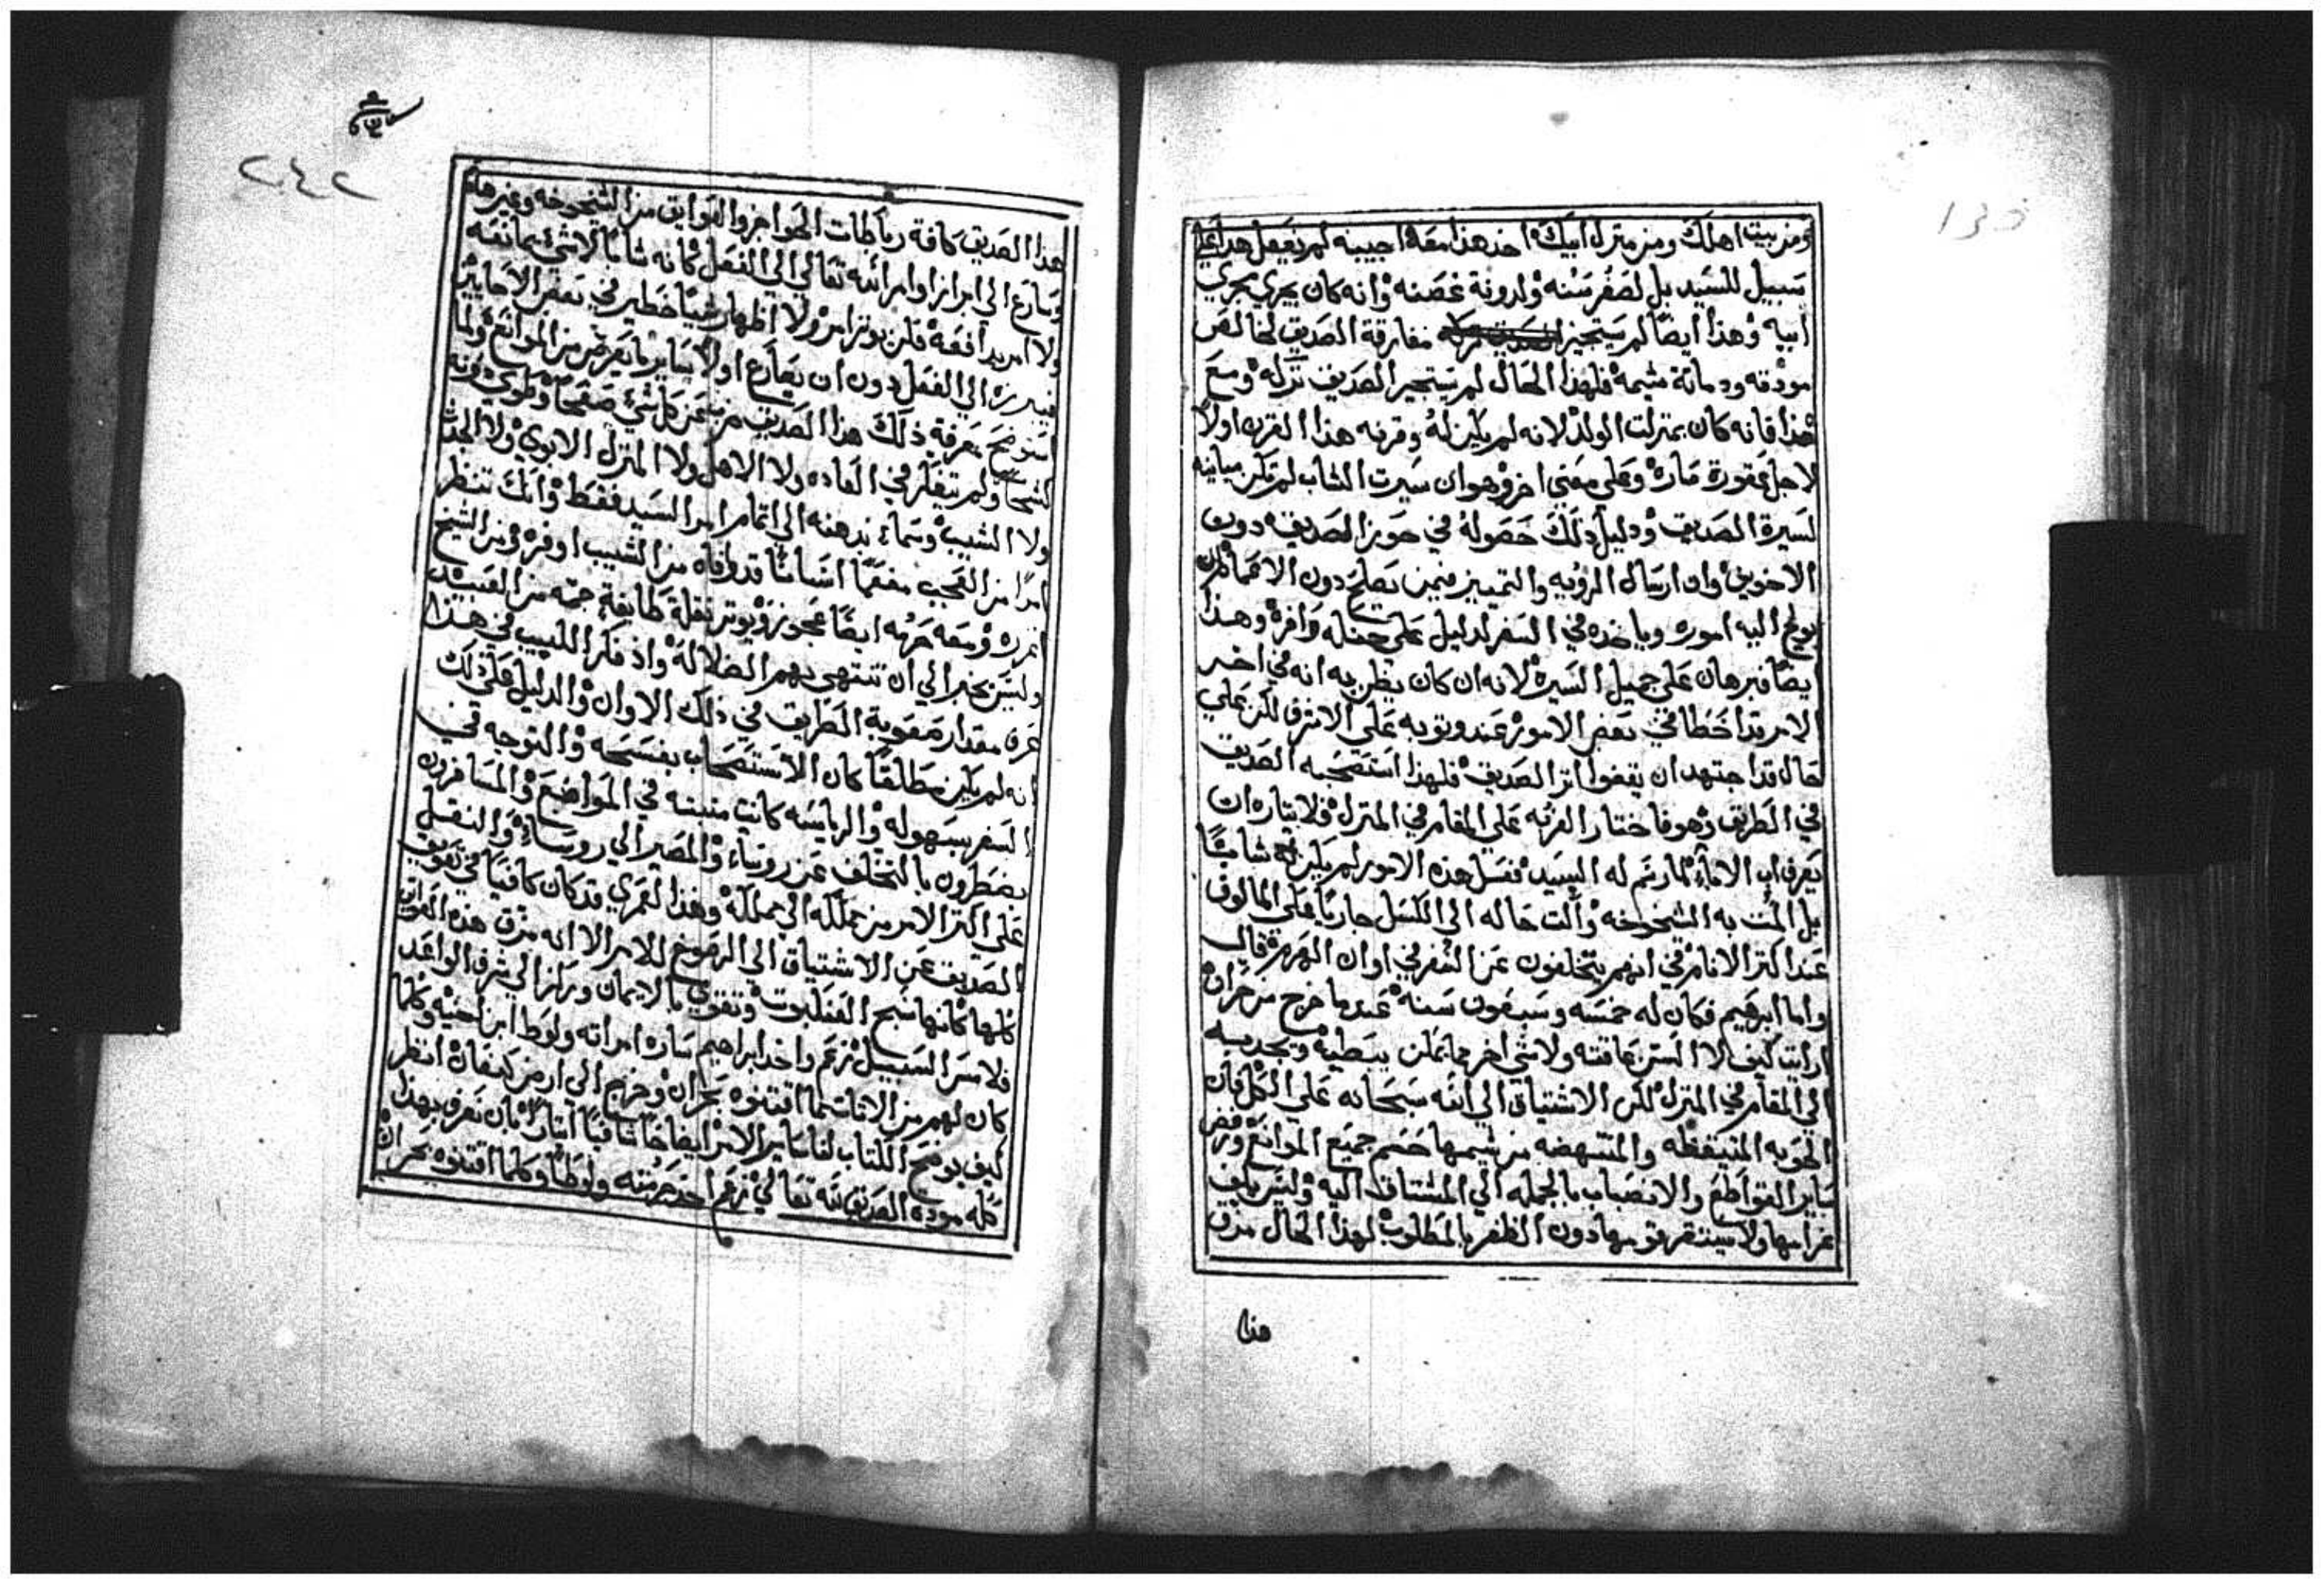 ومن بيت اهلك ومن منزل ابيك اخذ هذا معه اجيبنه لم نفعل هذا علي
سبيل للسيد بل لصغر سنه ولدونة غصنه وانه كان يجري مجري
ابيه وهذا ايضا لم يستجيز مفارقة الصديق لخالص
مودته ودماثة شيمه فلهذا الحال لم يستجيز الصديق تركه ومع
هذا فانه كان بمنزلت الولد لانه لم يكن له وقرنه هذا القرن اولا
لاجل عقورة سارة وعلي معني اخر وهو ان سيرت الشاب لم تكن مباينه
لسيرة الصديق ودليل ذلك حصوله في حوز الصديق دون
الاخوين وان ارسال الرؤيه والتمييز فيمن يصلح دون الاعمام ان
يولج اليه اموره وياخذه في السفر لدليل علي حفله وافره وهذا
ايضا فبرهان علي جميل السيره لانه ان كان يظن به انه في اخر
الامر قد اخطا في بعض الامور عند وتوبه علي الاشرف لكن علي
حال قد اجتهد ان يقفوا اثر الصديق فلهذا استصحبه الصديق
في الطريق وهو فاختار الغربه علي المقام في المنزل فلايتاره ان
يعرف ان الاباء لما رسم له السيد فعل هذه الامور لم يكن شابا
بل المت به الشيخوخه والت حاله الي الكسل جاريا علي المالوف
عند اكثر الانام في انهم يتخلفون عن السفر في اوان الهرم قال
واما ابرهيم فكان له خمسه وسبعون سنه عندما خرج من حران
ارايت كيف لا السن عاقته ولا شي اخر مما يمكن يبطيه ويجدبه
الي المقام في المنزل لكن الاشتياق الي الله سبحانه علي الكل فان
الحوبه المتيقظه والمنتهضه من شيمها حسم جميع الموانع ورفض
ساير القواطع والانصباب بالجمله الي المشتاق اليه وليس يكف
عزامها ولا يستقر قرارها دون الظفر بالمطلوب لهذا الحال مزق
هذا
هذا الصديق كافة رباطات الهواجز والعوايق من الشيخوخه وغيرها
وسارع الي ابراز اوامر الله تعالي الي الفعل كانه شابا لا شي يمانعه
ولا امر يدافعه فلن يوثر امرؤ ولا اظهار شيا خطير في بعض الاحايين
فيبرزه الي الفعل دون ان يصارع اولا ساير ما يعرض من الموانع ولما
استوضح بمعرفة ذلك هذا الصديق مر عن كل شي صفحا وطوي دونه
كشحا ولم يتفكر في العاده ولا الاهل ولا المنزل الابوي ولا الجدث
ولا الشيب وسماء بذهنه الي اتمام امر السيد فقط وانك تنظر
امرا من العجب مفعما انسانا قد وافاه من الشيب اوفره ومن الشيخ
اغزره ومعه حرمه ايضا عجوز ويوثر نقلة طايفة جمه من العبيد
وليس بخبر الي ان تنتهي بهم الضلاله واذ فكر اللبيب في هذا
عرف مقدار صعوبة الطريق في ذلك الاوان والدليل علي ذلك
انه لم يكن مطلقا كان الاستصحاب بفسحه والتوجه في
السفر بسهوله والرياسه كانت منبثه في المواضع والمسافرون
يضطرون بالتخلف عن روساء والمصير الي روساء والنقل
علي اكثر الامر من مملكه الي مملكه وهذا لعمري قد كان كافيا في تعويق
الصديق عن الاشتياق الي الرضوخ للامر الا انه مزق هذه العوايق
كلها كانها نسج العنكبوت وتقوي بالايمان وركز الي شرف الواعد
فلاسر السبيل زعم واخذ ابراهيم ساره امراته ولوط ابن اخيه وكلما
كان لهم من الاثاث مما اقتنوه بحران وخرج الي ارض كنعان انظر
كيف يوضح الكتاب لنا ساير الامر ايضاحا شافيا ايثارا بان نعرف بهذا
كله مودة الصديق لله تعالي زعم اخذ حرمته ولوطا وكلما اقتنوه بحران
٢٤٢